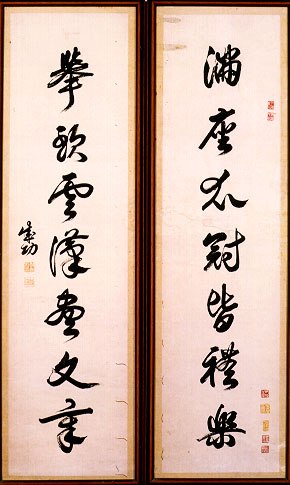 滿座衣冠皆禮樂
舉頭雲漢盡文章
成功